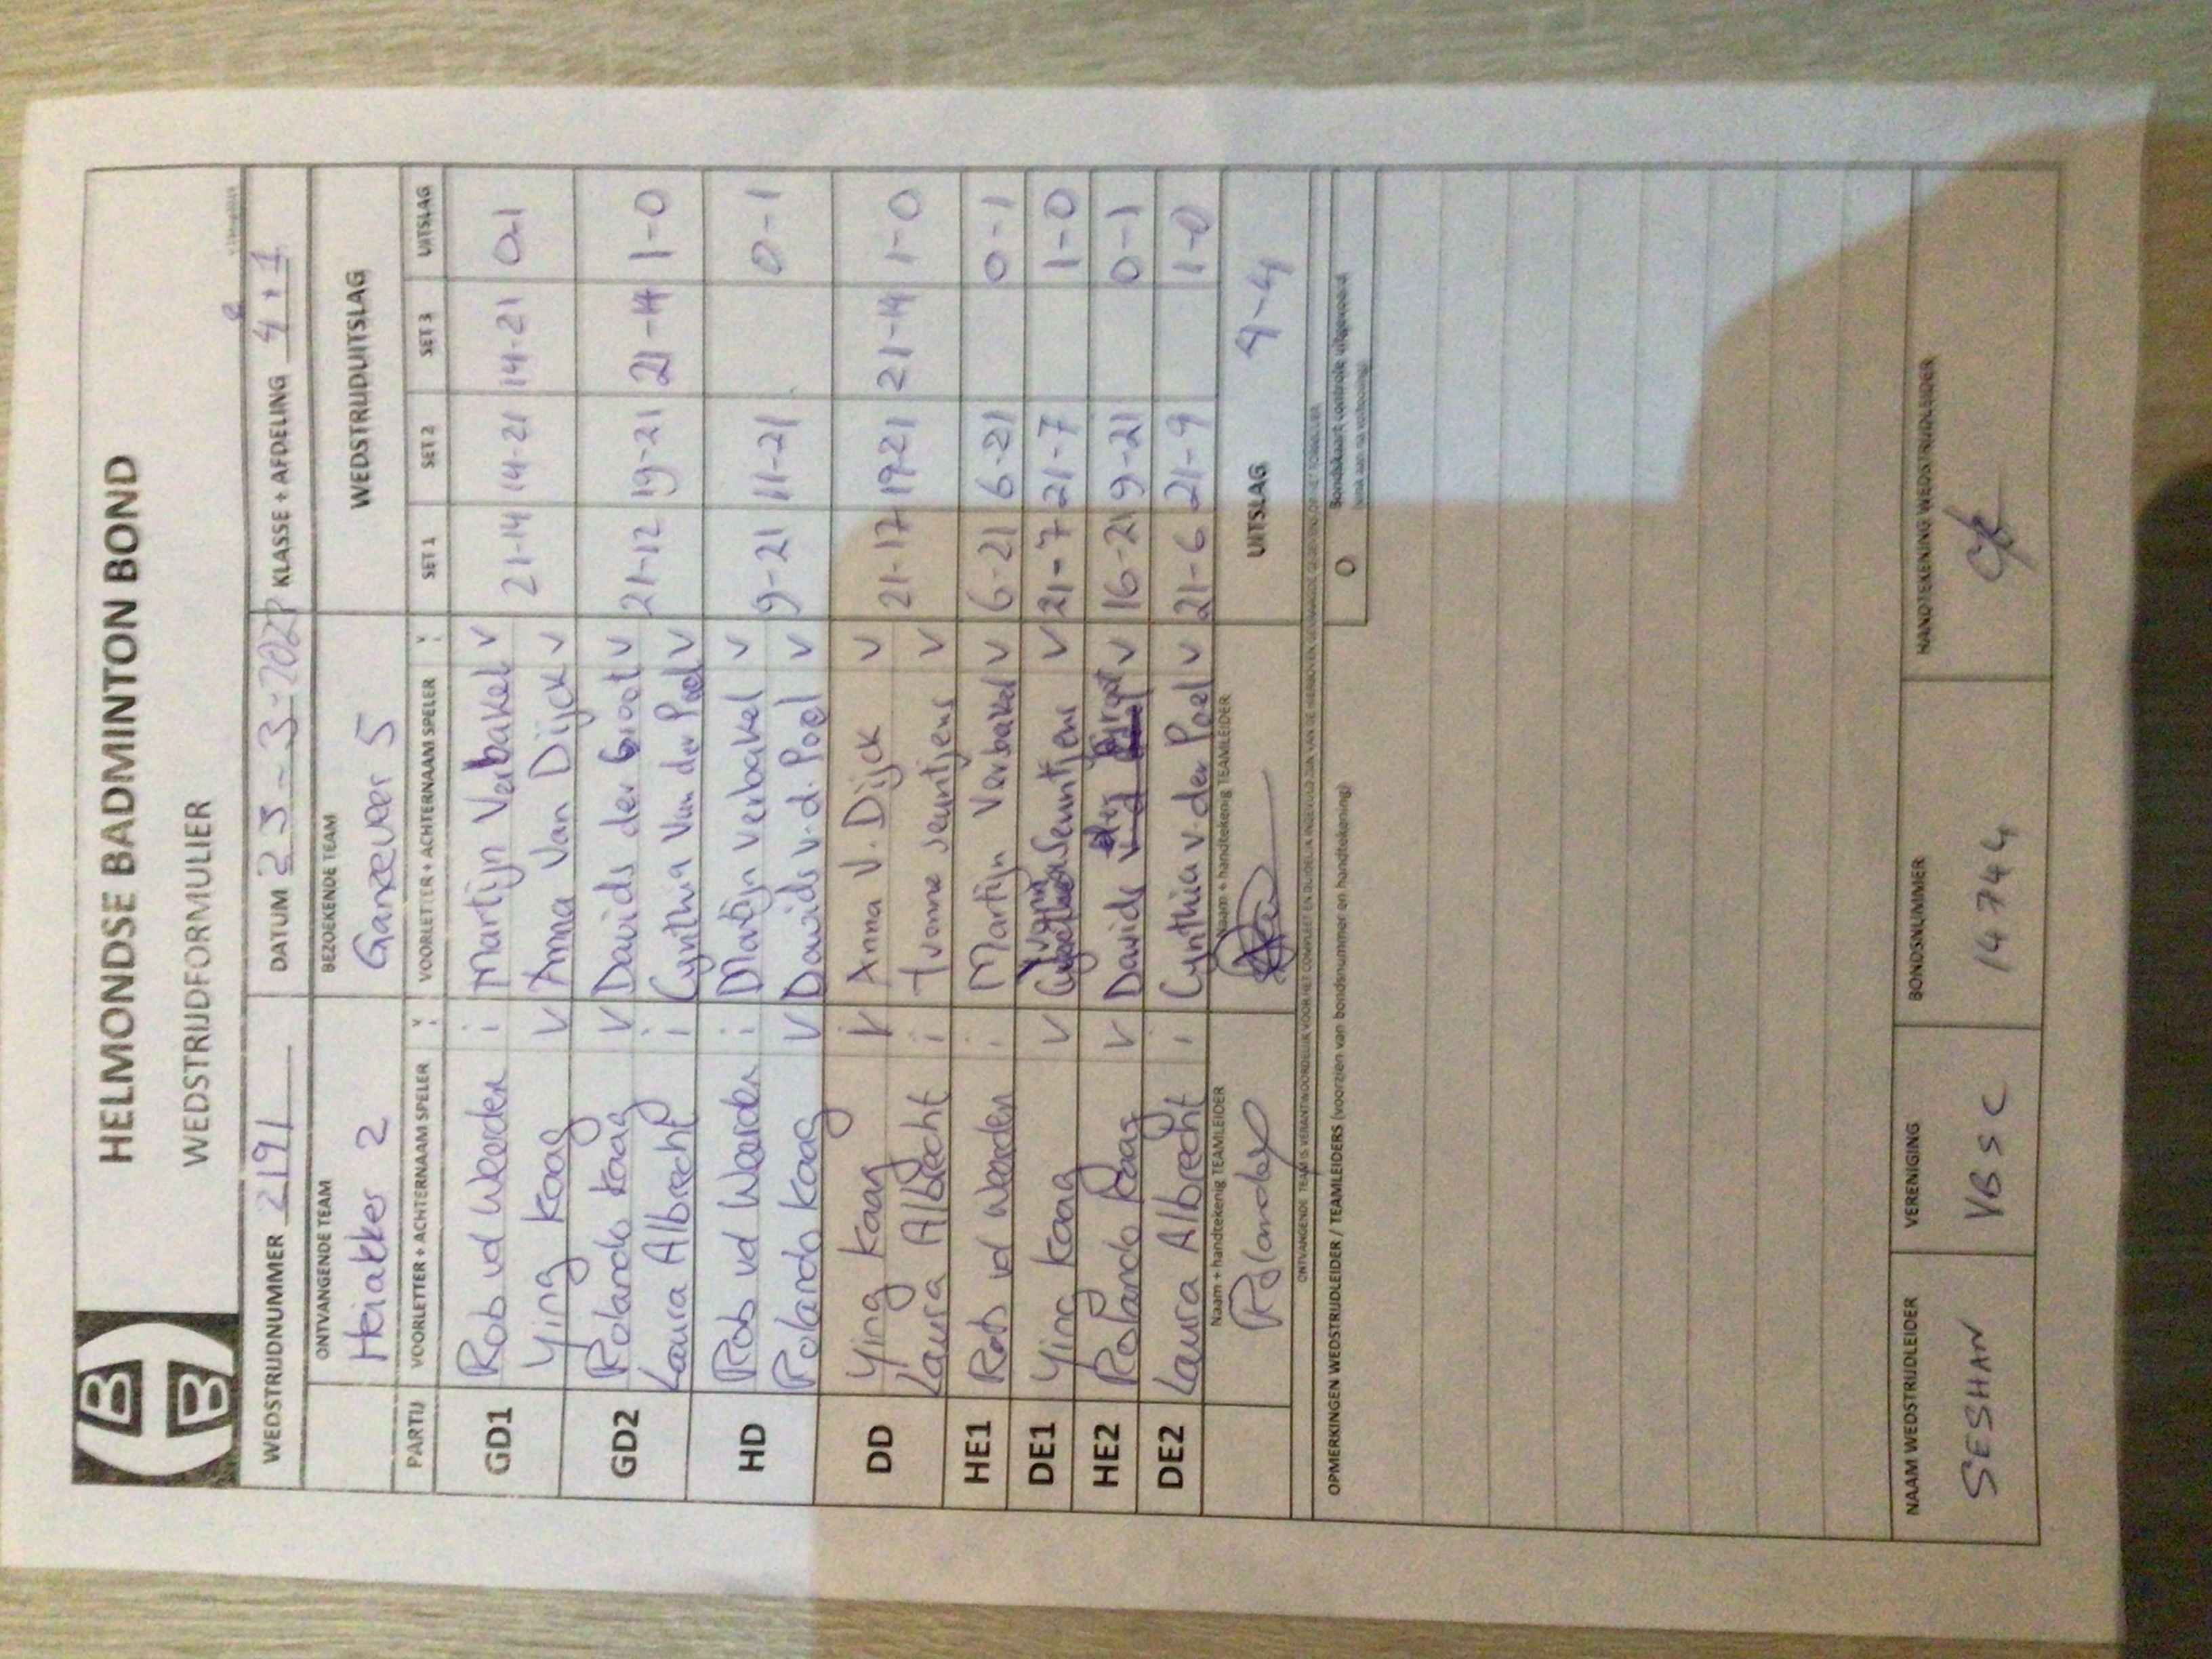 HELMONDSE BADMINTON BOND
WEDSTRIJDFORMULIER
WEDSTRIJDNUMMER 2191 DATUM 23-3-202 KLASSE + AFDELING 4e 1
ONTVANGENDE TEAM BEZOEKENDE TEAM WEDSTRIJDUITSLAG
Heiakker 2 Ganzeveer 5
PARTIJ VOORLETTER + ACHTERNAAM SPELER VOORLETTER + ACHTERNAAM SPELER SET 1 SET 2 SET 3 UITSLAG
GD1 Rob vd Weerden i Martijn Verbakel v 21-14 14-21 14-21 0-1
Ying Kaag V Anna Van Dijck v
GD2 Rolando Kaag V Davids der Groot v 21-12 19-21 21-14 1-0
Laura Albrecht i Cynthia Van der Poel v
HD Rob vd Weerden i Martijn Verbakel v 9-21 11-21 0-1
Rolando Kaag V Davids v.d. Poel v
DD Ying Kaag V Anna V. Dijck v 21-17 19-21 21-14 1-0
Laura Albrecht i Yvonne Seuntjens v
HE1 Rob vd Weerden i Martijn Verbakel v 6-21 6-21 0-1
DE1 Ying Kaag V Yvonn Seuntjens v 21-7 21-7 1-0
HE2 Rolando Kaag V Davids der Groot v 16-21 9-21 0-1
DE2 Laura Albrecht i Cynthia v. der Poel v 21-6 21-9 1-0
Naam + handtekenig TEAMLEIDER Naam + handtekenig TEAMLEIDER UITSLAG 4-4
Rolando
ONTVANGENDE TEAM IS VERANTWOORDELIJK VOOR HET COMPLEET EN DUIDELIJK INGEVULD ZIJN VAN DE
O Bondskaart controle uitgevoerd
OPMERKINGEN WEDSTRIJDLEIDER / TEAMLEIDERS (voorzien van bondsnummer en handtekening)
NAAM WEDSTRIJDLEIDER VERENIGING BONDSNUMMER HANDTEKENING WEDSTRIJDLEIDER
SESHAN VBSC 14744